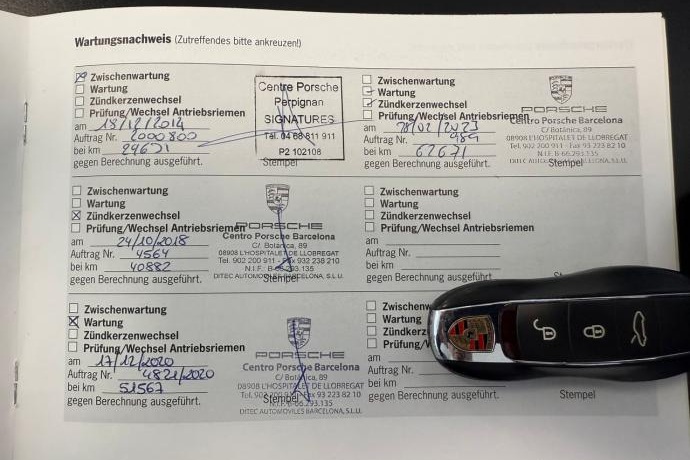 Wartungsnachweis (Zutreffendes bitte ankreuzen!)
Zwischenwartung
Wartung
Zündkerzenwechsel
Prüfung/Wechsel Antriebsriemen
am 18/12/2014
Auftrag Nr. 2000800
bei km 29671
gegen Berechnung ausgeführt.
Stempel
Centre Porsche
Perpignan
SIGNATURES
Tél. 04 68 811 911
P2 102108
Zwischenwartung
Wartung
Zündkerzenwechsel
Prüfung/Wechsel Antriebsriemen
am 24/10/2018
Auftrag Nr. 4564
bei km 40882
gegen Berechnung ausgeführt.
Stempel
PORSCHE
Centro Porsche Barcelona
C/ Botànica, 89
08908 L'HOSPITALET DE LLOBREGAT
Tel. 902 200 911 - Fax 932 238 210
N.I.F. B-66.293.135
DITEC AUTOMÓVILES BARCELONA, S.L.U.
Zwischenwartung
Wartung
Zündkerzenwechsel
Prüfung/Wechsel Antriebsriemen
am 17/12/2020
Auftrag Nr. 4821/2020
bei km 51567
gegen Berechnung ausgeführt.
Stempel
PORSCHE
Centro Porsche Barcelona
C/ Botànica, 89
08908 L'HOSPITALET DE LLOBREGAT
Fax 93 223 82 10
N.I.F. B-66.293.135
DITEC AUTOMOVILES BARCELONA, S.L.U.
Zwischenwartung
Wartung
Zündkerzenwechsel
Prüfung/Wechsel Antriebsriemen
am /02/2023
Auftrag Nr. 984
bei km 67671
gegen Berechnung ausgeführt.
Stempel
PORSCHE
Centro Porsche Barcelona
C/ Botànica, 89
08908 L'HOSPITALET DE LLOBREGAT
Tel. 902 200 911 - Fax 93 223 82 10
N.I.F. B-66.293.135
DITEC AUTOMOVILES BARCELONA, S.L.U.
Zwischenwartung
Wartung
Zündkerzenwechsel
Prüfung/Wechsel Antriebsriemen
am
Auftrag Nr.
bei km
gegen Berechnung ausgeführt.
Zwischenw
Wartung
Zündkerz
Prüfung/W
am
Auftrag Nr.
bei km
gegen Berechnung ausgeführt.
Stempel